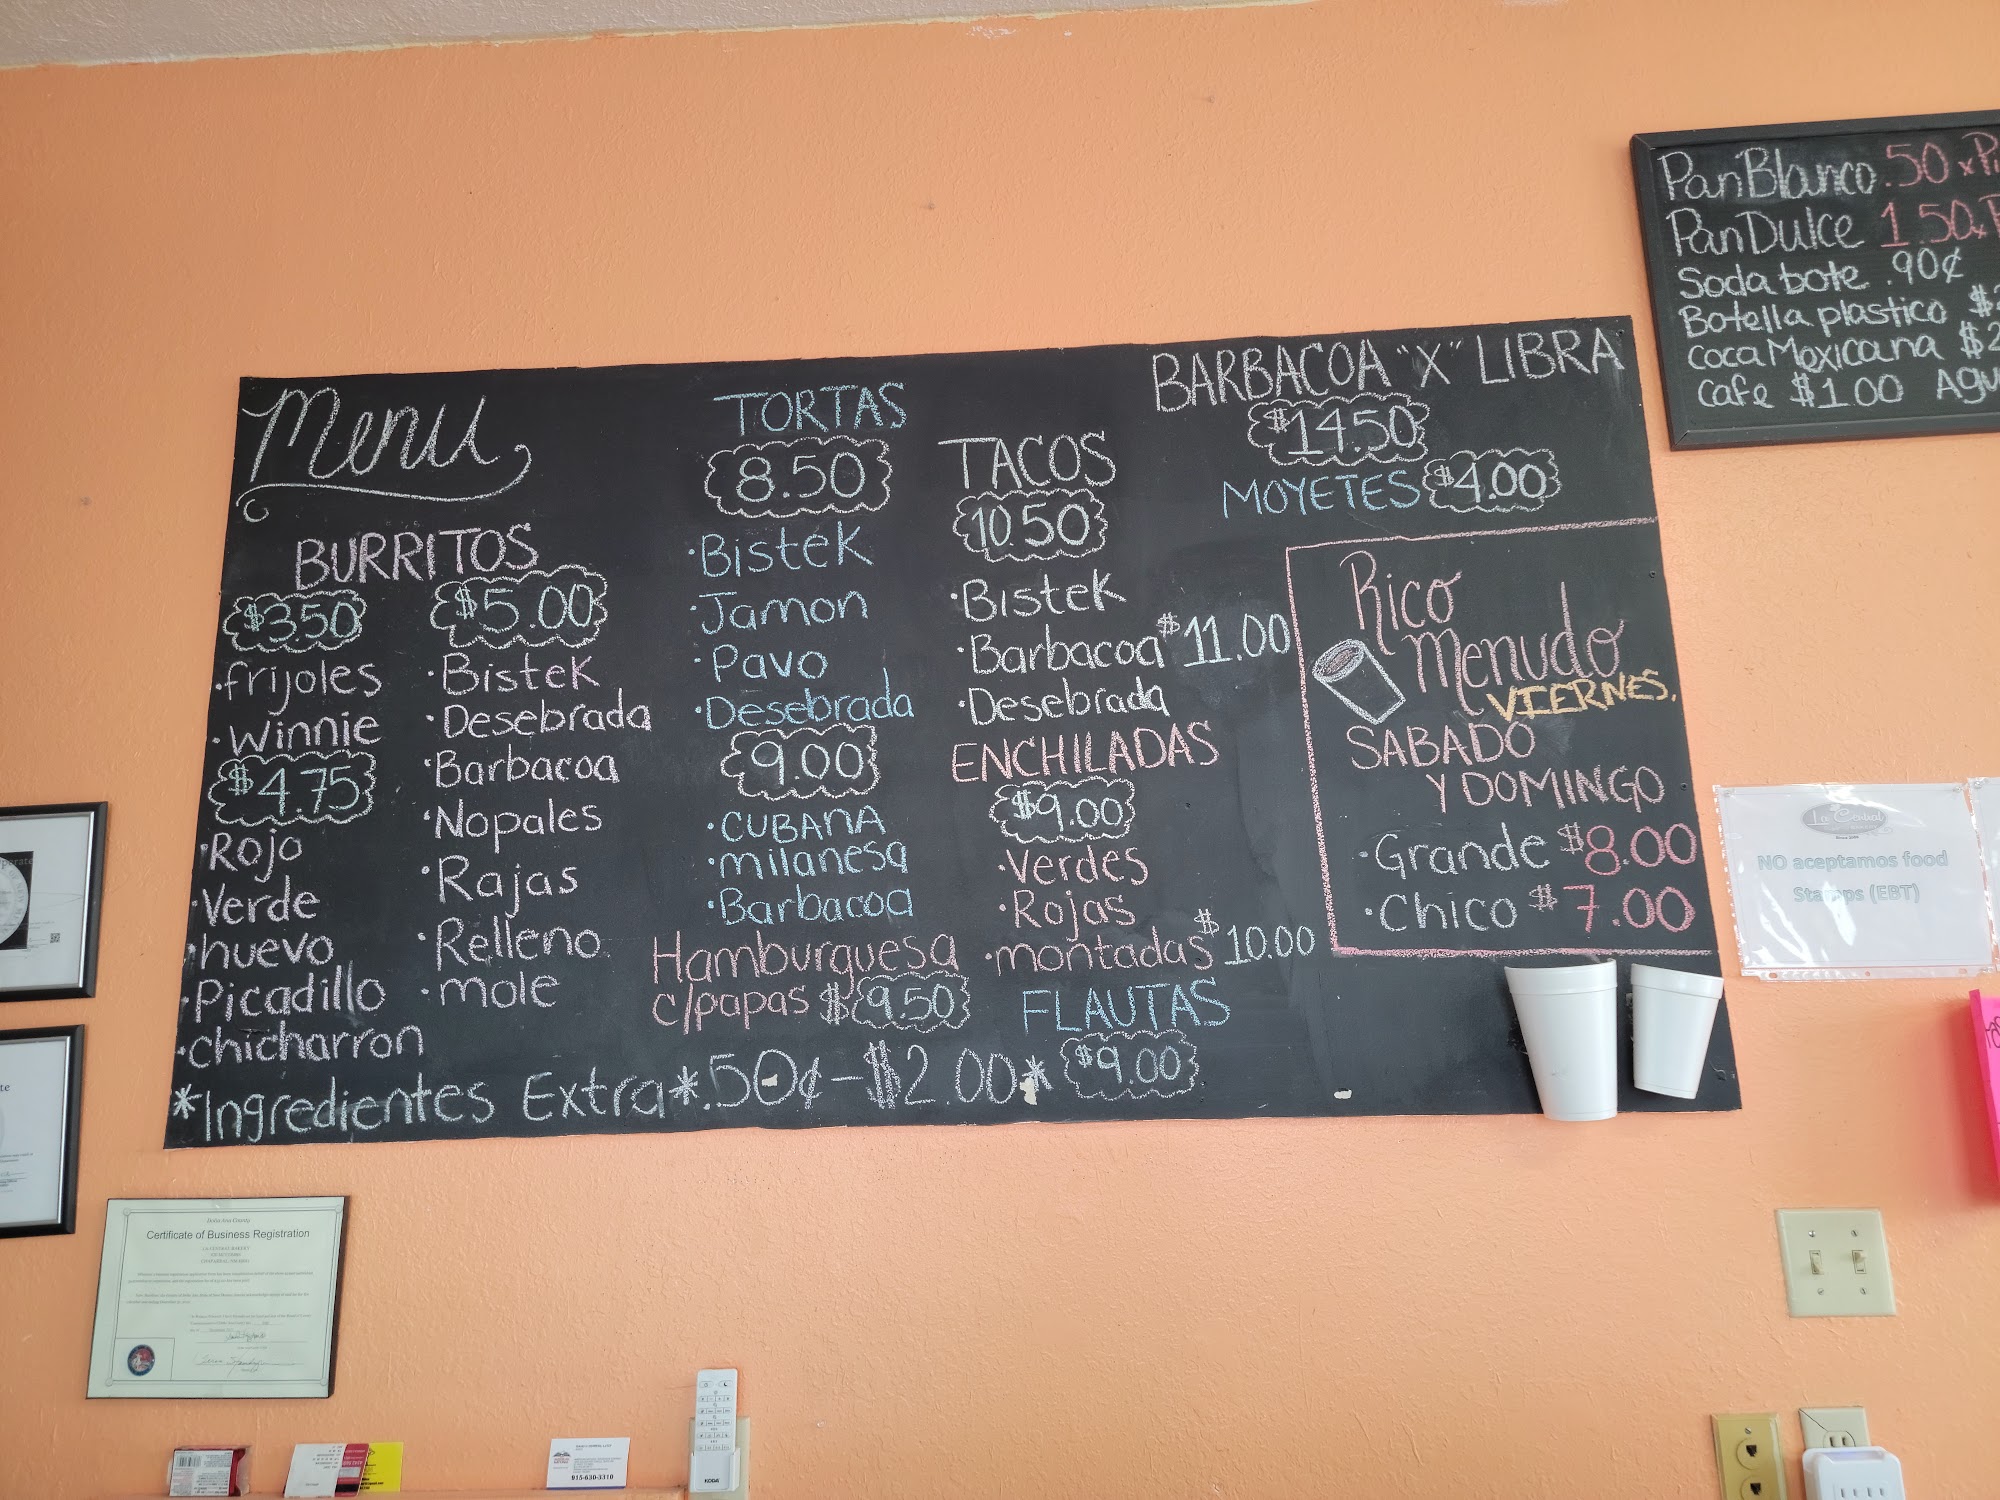 Menu
BURRITOS
$3.50
·frijoles
·Winnie
$4.75
·Rojo
·Verde
·huevo
·Picadillo
·chicharron
$5.00
·Bistek
·Desebrada
·Barbacoa
·Nopales
·Rajas
·Relleno
·mole
*Ingredientes Extra*.50¢-$2.00*
TORTAS
8.50
·Bistek
·Jamon
·Pavo
·Desebrada
9.00
·CUBANA
·milanesa
·Barbacoa
Hamburguesa
c/papas $9.50
TACOS
10.50
·Bistek
·Barbacoa $11.00
·Desebrada
ENCHILADAS
$9.00
·Verdes
·Rojas
·montadas $10.00
FLAUTAS
$9.00
BARBACOA "X" LIBRA
$14.50
MOYETES $4.00
Rico
Menudo
VIERNES.
SABADO
Y DOMINGO
·Grande $8.00
·Chico $7.00
Pan Blanco .50 x
Pan Dulce 1.50x
Soda bote .90¢
Botella plastico $
Coca Mexicana $2
Cafe $1.00 Agu
La Central
NO aceptamos food
Stamps (EBT)
Doña Ana County
Certificate of Business Registration
LA CENTRAL BAKERY
915-630-3310
KODA